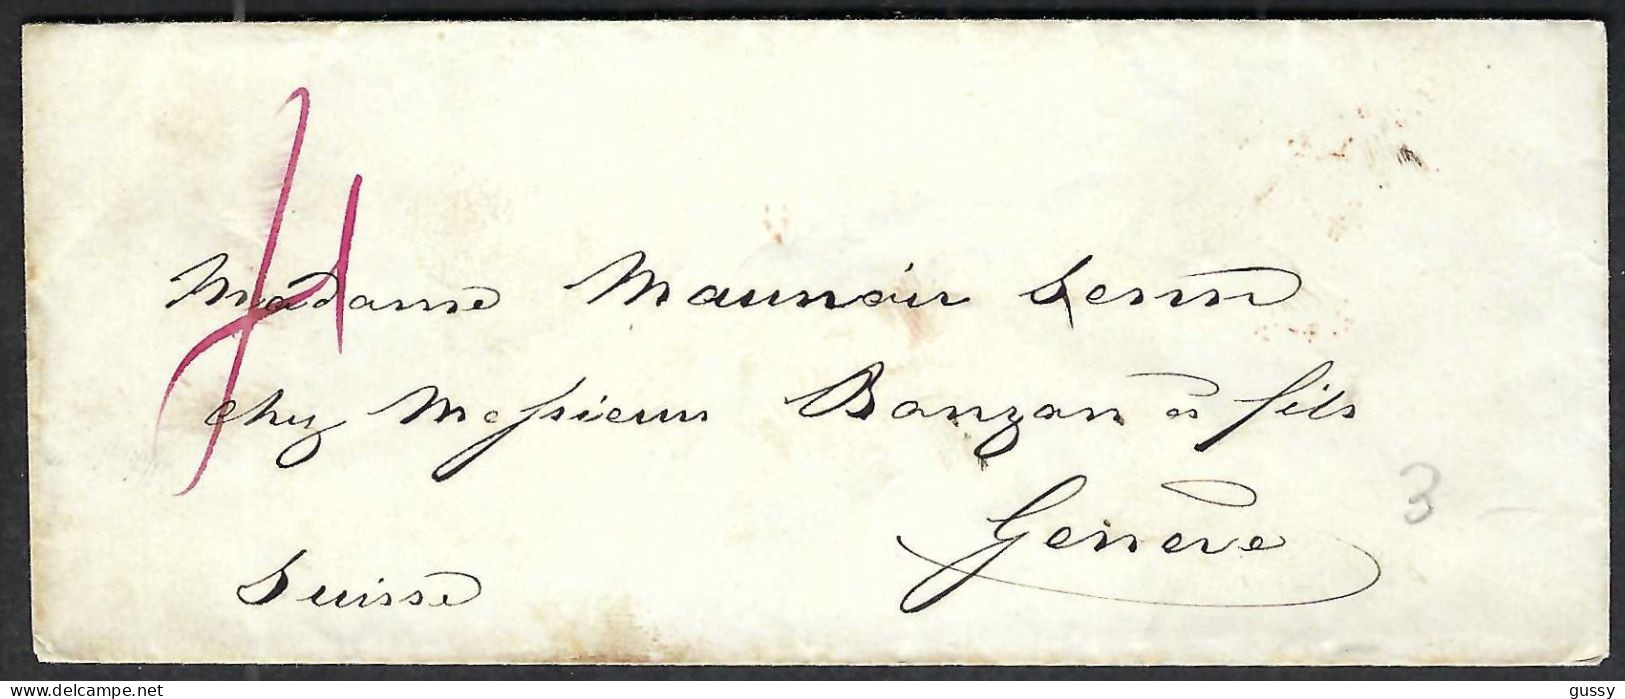 Madame Maunoir Senn
chez Messieurs Banzan & fils
Genève
3
Suisse
delcampe.net
gussy